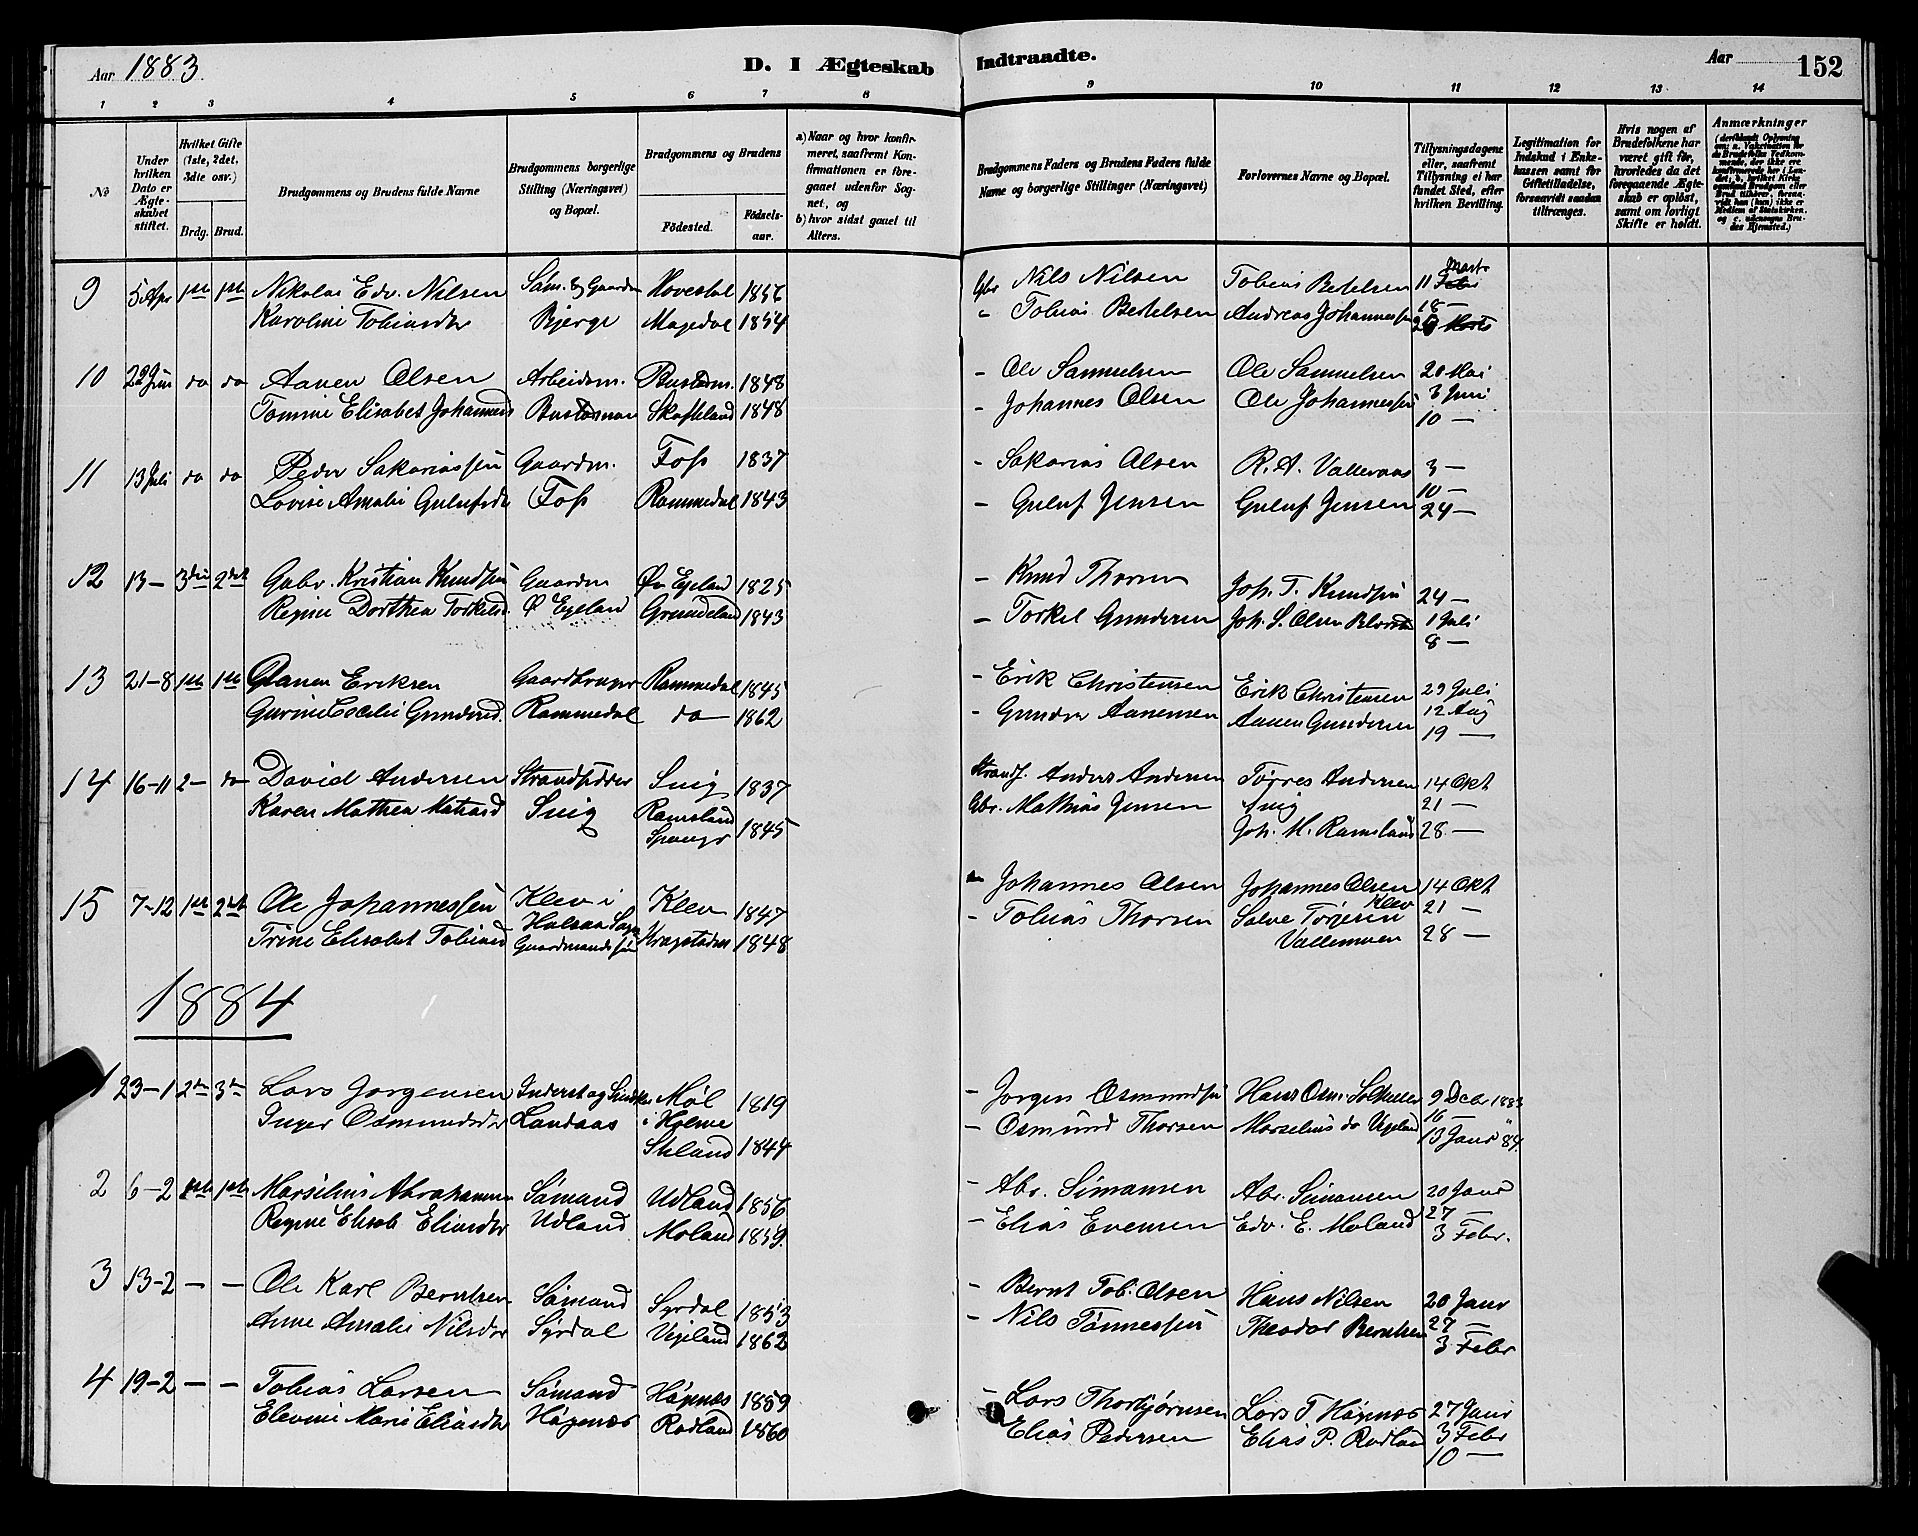 Aar 1883
D. I Ægteskab Indtraadte.
Aar
152
1 2 3 4 5 6 7 8 9 10 11 12 13 14
No
Under hvilken Dato er Ægteskabet stiftet.
Hvilket Gifte (1ste, 2det, 3die osv.)
Brdg. Brud.
Brudgommens og Brudens fulde Navne
Brudgommens borgerlige Stilling (Næringsvei) og Bopæl.
Brudgommens og Brudens
Födested.
Födselsaar.
a) Naar og hvor konfirmeret, saafremt Konfirmationen er foregaaet udenfor Sognet, og
b) hvor sidst gaaet til Alters.
Brudgommens Faders og Brudens Faders fulde Navne og borgerlige Stillinger (Næringsvei)
Forlovernes Navne og Bopæl.
Tillysningsdagene eller, saafremt Tillysning ei har fundet Sted, efter hvilken Bevilling.
Legitimation for Indskud i Enkekassen samt for Giftetilladelse, forsaavidt saadan tiltrænges.
Hvis nogen af Brudefolkene har været gift för, hvorledes da det foregaaende Ægteskab er oplöst, samt om lovligt Skifte er holdt.
Anmærkninger
9 5 Apr 1ste 1ste Nikolai Edv. Nilsen Søm. & Gaardm Hovestøl 1856 Gbr Nils Nilsen Tobias Betelsen 11 Marts
Karoline Tobiasdtr Bjerge Magedal 1854 - Tobias Betelsen Andreas Johannessen 18 -
10 22 Juni do do Aanen Olsen Arbeidsm. 1848 - Ole Samuelsen Ole Samuelsen 20 Mai
Tomine Elisabet Johannesd Skofteland 1848 - Johannes Olsen Ole Johannessen 3 Juni
10 -
11 13 Juli do do Peder Sakariassen Gaardm. Foss 1837 - Sakarias Olsen R. A. Valleraas 3 -
Lovise Amalie Gulufsdtr Foss Rommedal 1843 - Guluf Jensen Guluf Jensen 10 -
24 -
12 13 - 3die 2det Gabr. Kristian Knudsen Gaardm Øv Egeland 1825 - Knud Thorsen Joh. T. Knudsen 24 -
Regine Dorthea Torkelsd. Ø Egeland Grundeland 1843 - Torkel Gundersen Joh. S. Olsen 1 Juli
8 -
13 21-8 1ste 1ste Aanen Eriksen Gaardbruger Rommedal 1845 - Erik Christensen Erik Christensen 29 Juli
Gundersd. Rommedal do 1862 - Gunder Aanensen Aanen Gundersen 12 Aug
19 -
14 16-11 2- do David Andersen Strandsidder Snig 1837 Strands. Anders Andersen Tørres Andersen 14 Okt
Karen Mathea Matiasd Snig Ramsland 1845 Gbr. Mathias Jensen Snig 21 -
Joh. M. Ramsland 28 -
15 7-12 1ste 2det Ole Johannessen Klev i Klev 1847 - Johannes Olsen Johannes Olsen Klev 14 Okt
Trine Elisabet Tobiasd Halsaa Sogn 1848 - Tobias Thorsen Salve Torjesen 21 -
Gaardmandssøn Vallemoen 28 -
1884
1 23-1 2den 3die Lars Jorgensen Landaas Møl i Holme 1819 - Jorgen Osmundsen 9 Debr 1883
Inger Osmundsdtr 1844 - Osmund Thorsen Marselius do Vigeland 16 -
13 Janr 84
2 6-2 1ste 1ste Marselius Abrahamsen Sømand Udland 1856 - Abr. Simonsen Abr. Simonsen 20 Janr
Regine Elisab Eliasdtr Udland Moland 1859. - Elias Evensen Edv. E. Moland 27 -
3 Febr.
3 13-2 - - Ole Karl Berntsen Sømand Syrdal 1853 - Bernt Tob. Olsen Hans Nilsen 20 Janr
Anne Amalie Nilsdtr Syrdal Vigeland 1862 - Nils Tønnessen Theodor Berntsen 27 -
3 Febr
4 19-2 - - Tobias Larsen Sømand Høgnæs 1859 - Lars Thorbjørnsen Lars T Høgnæs 27 Janr
Elevine Marie Eliasdtr Høgenæs Rødland 1860 Elias Pedersen Elias P. Rødland 3 Febr
10 -